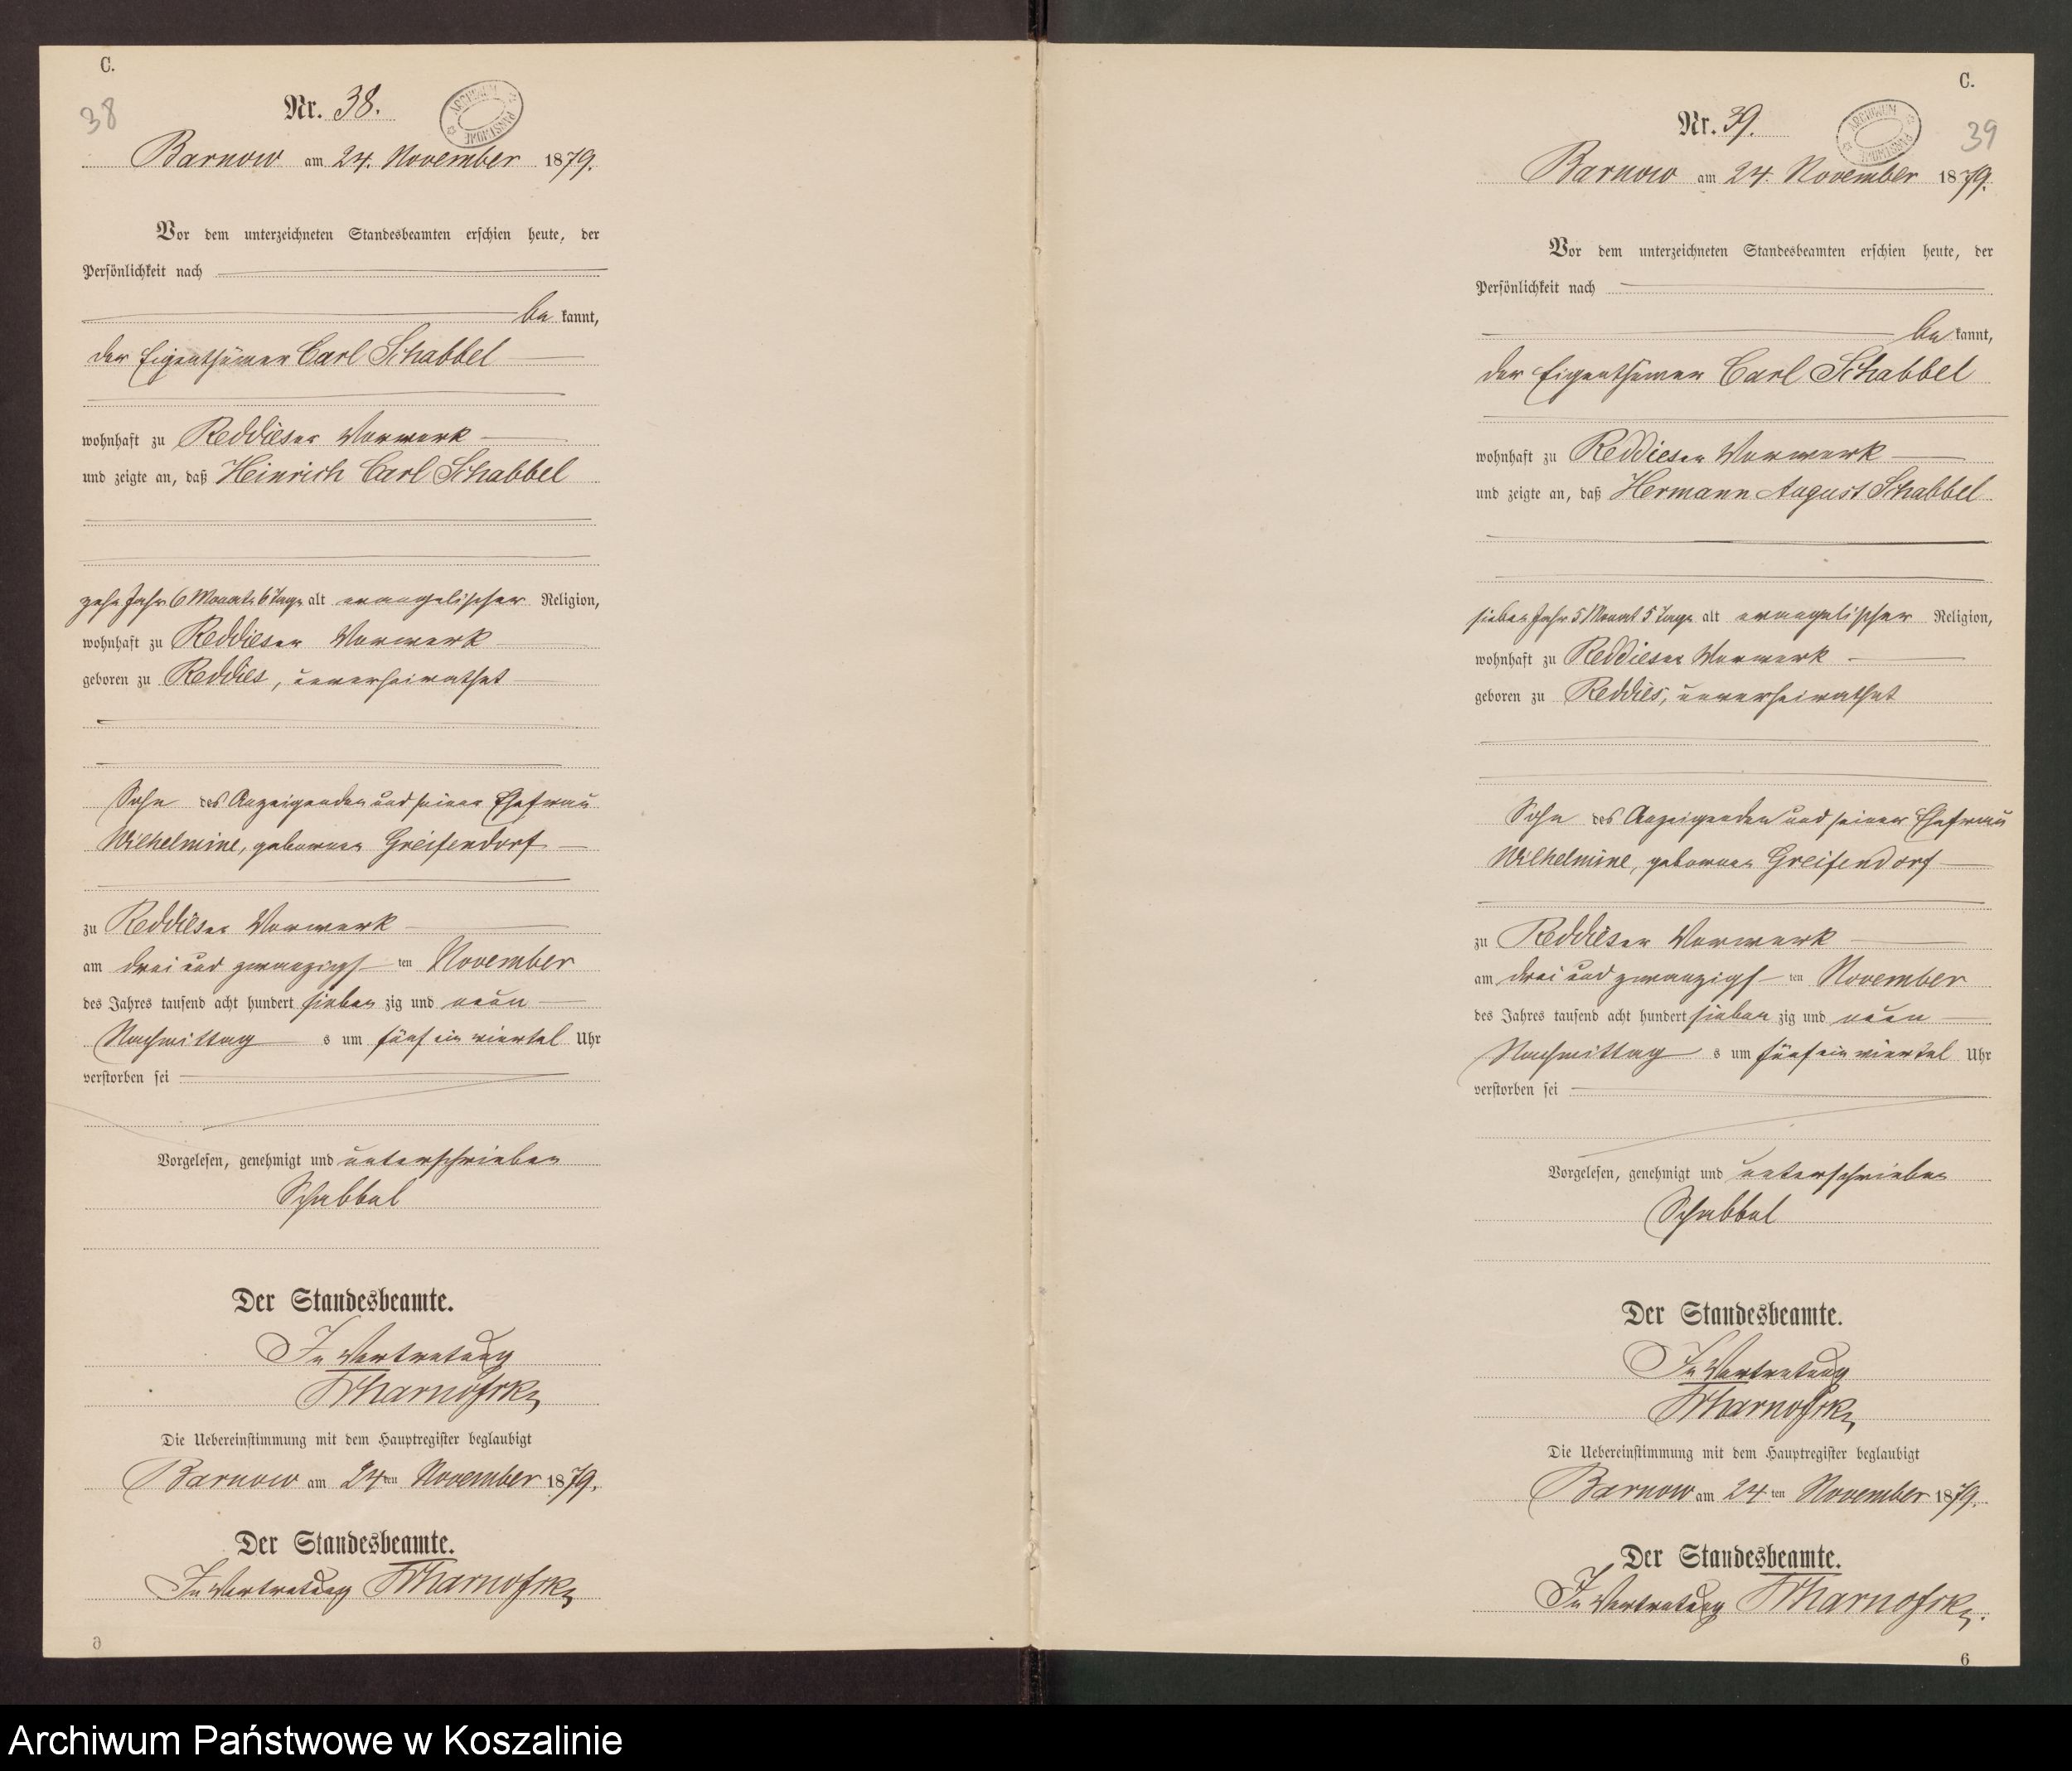 C.
38
Nr. 38.
ARCHIWUM PAŃSTWOWE
Barnow am 24. November 1879.
Vor dem unterzeichneten Standesbeamten erschien heute, der
Persönlichkeit nach
be kannt,
der Eigenthümer Carl Schabbel
wohnhaft zu Reddieser Vorwerk
und zeigte an, daß Heinrich Carl Schabbel
zehn Jahr 6 Monate 6 Tage alt evangelischer Religion,
wohnhaft zu Reddieser Vorwerk
geboren zu Reddies, unverheirathet
Sohn des Anzeigenden und seiner Ehefrau
Wilhelmine, geborenen Greifendorf
zu Reddieser Vorwerk
am drei und zwanzigs ten November
des Jahres tausend acht hundert sieben zig und neun
Nachmittag s um fünf ein viertel Uhr
verstorben sei
Vorgelesen, genehmigt und unterschrieben
Schabbel
Der Standesbeamte.
In Vertretung
Die Uebereinstimmung mit dem Hauptregister beglaubigt
Barnow am 24 ten November 1879.
Der Standesbeamte.
In Vertretung
6
C.
39
Nr. 39.
ARCHIWUM PAŃSTWOWE
Barnow am 24. November 1879.
Vor dem unterzeichneten Standesbeamten erschien heute, der
Persönlichkeit nach
be kannt,
der Eigenthümer Carl Schabbel
wohnhaft zu Reddieser Vorwerk
und zeigte an, daß Hermann August Schabbel
sieben Jahr 5 Monat 5 Tage alt evangelischer Religion,
wohnhaft zu Reddieser Vorwerk
geboren zu Reddies, unverheirathet
Sohn des Anzeigenden und seiner Ehefrau
Wilhelmine, geborenen Greifendorf
zu Reddieser Vorwerk
am drei und zwanzigs ten November
des Jahres tausend acht hundert sieben zig und neun
Nachmittag s um fünf ein viertel Uhr
verstorben sei
Vorgelesen, genehmigt und unterschrieben
Schabbel
Der Standesbeamte.
In Vertretung
Die Uebereinstimmung mit dem Hauptregister beglaubigt
Barnow am 24 ten November 1879.
Der Standesbeamte.
In Vertretung
6
Archiwum Państwowe w Koszalinie